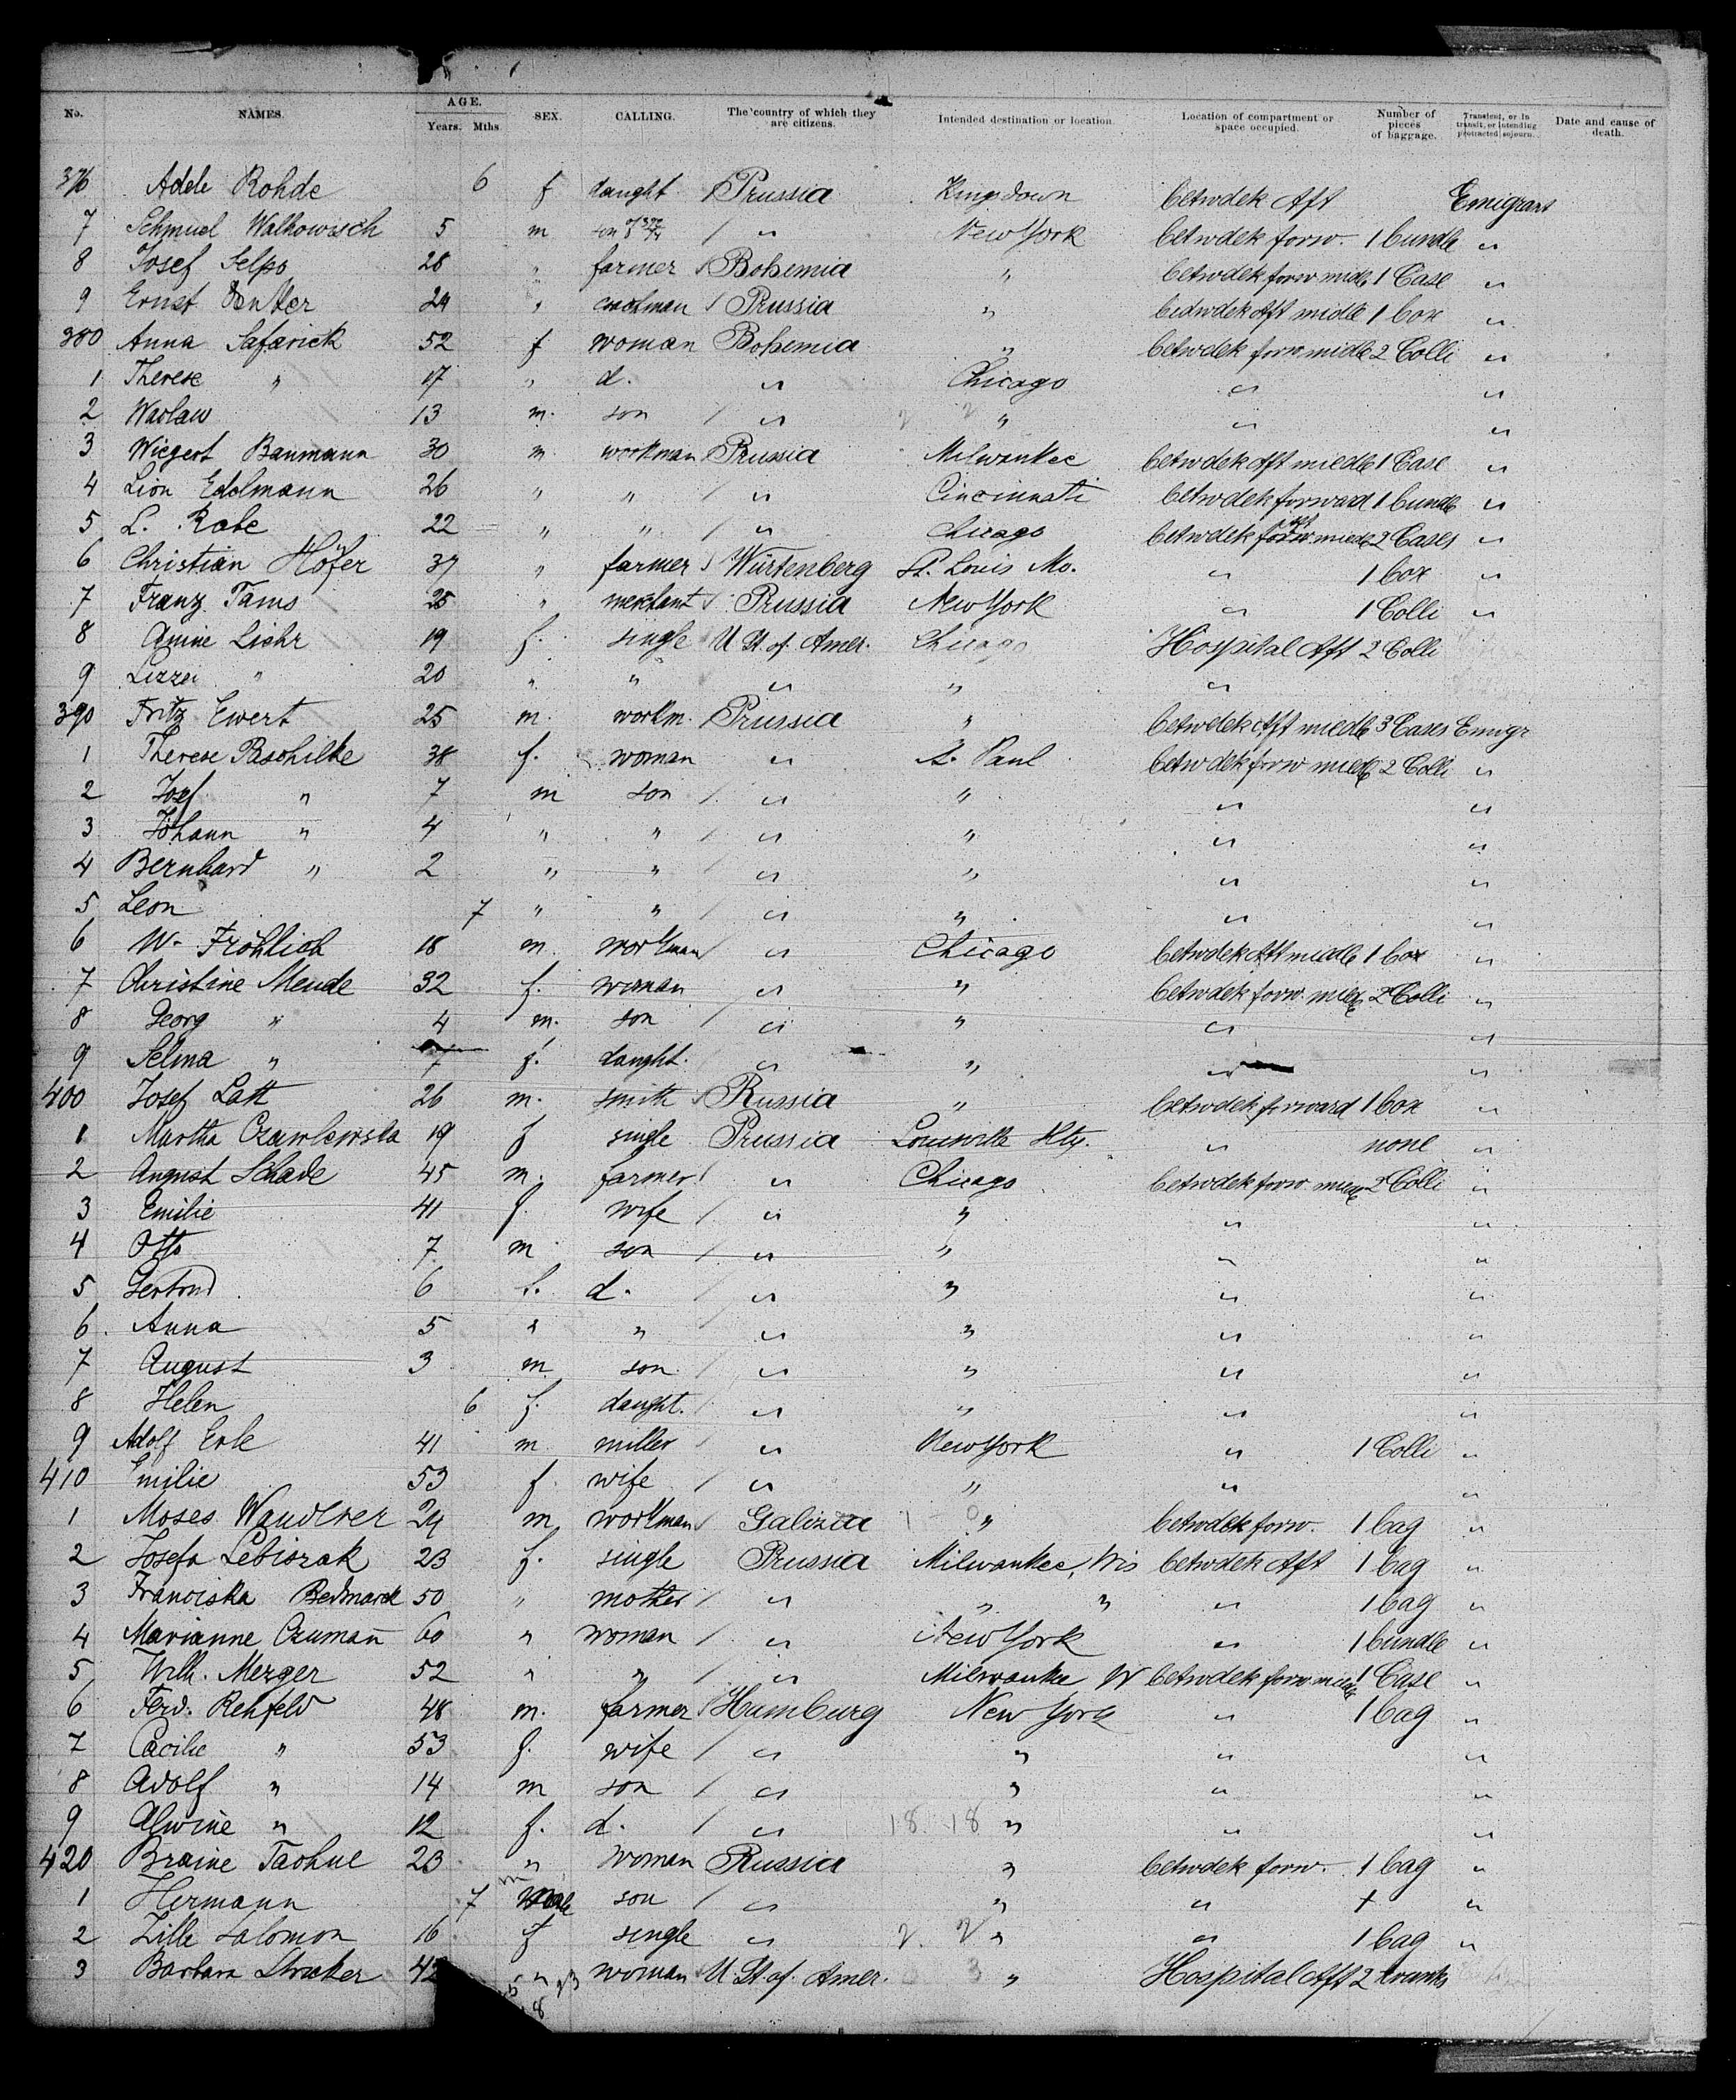 No. NAMES. AGE. Years. Mths. SEX. CALLING. The country of which they are citizens. Intended destination or location. Location of compartment or space occupied. Number of pieces of baggage. Transient, or in transit, or intending protracted sojourn. Date and cause of death.
376 Adele Rohde 6 f daught. Prussia Kingsdown betwdek Aft Emigrant
7 Schmuel Walkowisch 5 m son of " New York betwdek forw. 1 bundle "
8 Josef Selpo 28 " farmer Bohemia " betwdek forw midle 1 Case "
9 Ernst 24 " coachman Prussia " betwdek Aft midle 1 box "
380 Anna Safarick 52 f woman Bohemia " betwdek forw. midle 2 Colli "
1 Therese " 17 " d. " Chicago " "
2 Waslaw 13 m. son " " " "
3 Wiegert Baumann 30 m workman Prussia Milwaukee betwdek Aft miedle 1 Case "
4 Lion Edelmann 26 " " " Cincinnati betwdek forward 1 bundle "
5 L. Rabe 22 " " " Chicago betwdek forw. miedle 2 Cases "
6 Christian Höfer 37 " farmer Würtenberg St. Louis Mo. " 1 box "
7 Franz Tams 25 " mechant Prussia New York " 1 Colli "
8 Anine Liehr 19 f. single U St. of. Amer. Chicago Hospital Aft 2 Colli
9 Lizzei " 20 " " " " "
390 Fritz Ewert 25 m. workm. Prussia " betwdek Aft miedle 3 Cases Emigr
1 Therese Paschilke 38 f. woman " St. Paul betwdek forw miedle 2 Colli "
2 Josef " 7 m son " " " "
3 Johann " 4 " " " " " "
4 Bernhard " 2 " " " " " "
5 Leon 7 " " " " " "
6 W. Fröhlich 18 m. workman " Chicago betwdek Aft miedle 1 box "
7 Christine Mende 32 f. woman " " betwdek forw. miedle 2 Colli "
8 Georg " 4 m. son " " " "
9 Selma " 7 f. daught. " " " "
400 Josef Latt 26 m. smith Russia " betwdek forward 1 box "
1 Martha Czawlewska 19 f single Prussia Louisville Kty. " none "
2 August Schade 45 m. farmer " Chicago betwdek forw. miedle 2 Colli "
3 Emilie 41 f. wife " " " "
4 Otto 7 m son " " " "
5 Gertrud 6 f. d. " " " "
6 Anna 5 " " " " " "
7 August 3 m son " " " "
8 Helen 6 f. daught. " " " "
9 Adolf Erle 41 m miller " New York " 1 Colli "
410 Emilie 53 f. wife " " " "
1 Moses Wanderer 24 m workman Galizia " betwdek forw. 1 bag "
2 Josefa Lebiorak 23 f. single Prussia Milwaukee, Wis betwdek Aft 1 bag "
3 Franciska Bednarek 50 " mother " " " " 1 bag "
4 Marianne Czuman̄ 60 " woman " New York " 1 bundle "
5 Wilh. Merger 52 " " " Milwaukee W betwdek forw. miedle 1 Case "
6 Ferd. Rehfeld 48 m. farmer Hamburg New York " 1 bag "
7 Cacilie " 53 f. wife " " " "
8 Adolf " 14 m son " " " "
9 Alwine " 12 f. d. " 18. 18 " " "
420 Braine Taohne 23 " woman Russia " betwdek forw. 1 bag "
1 Hermann 7 m male son " " " + "
2 Zille Salomon 16 f single " 2. 2 " " 1 bag "
3 Barbara Stricker 42 " woman U. St. of. Amer. 3 " Hospital Aft 2 trunks
5 23
8